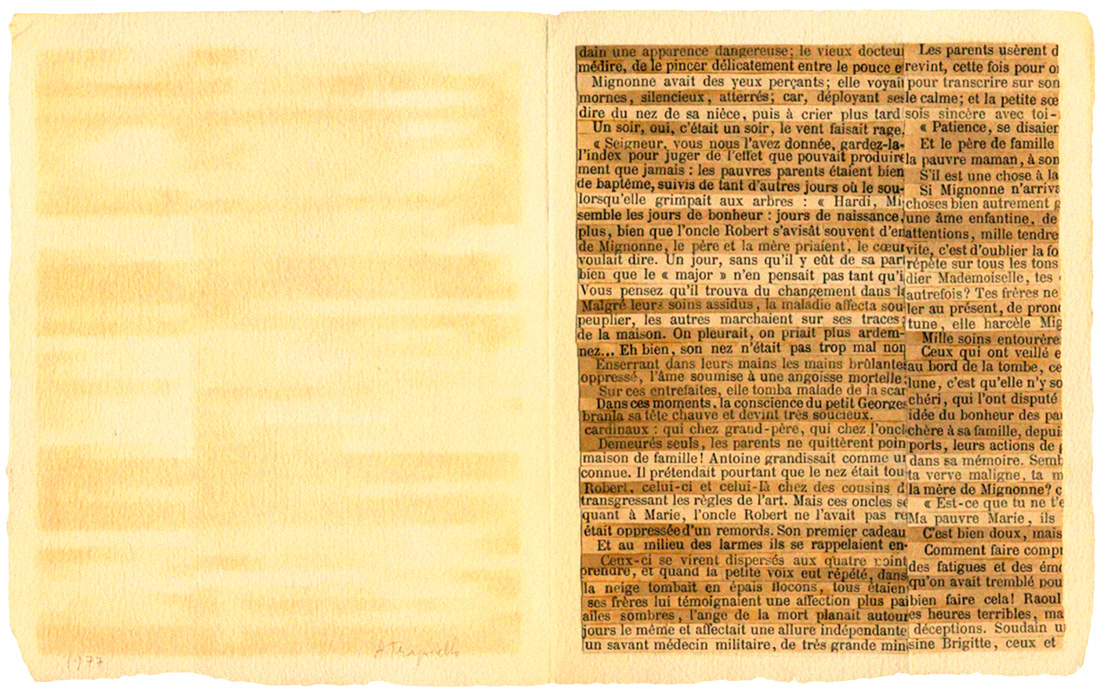 1977
dain une apparence dangereuse; le vieux docteur
médire, de le pincer délicatement entre le pouce e
Mignonne avait des yeux perçants; elle voyait
mornes, silencieux, atterrés; car, déployant ses
dire du nez de sa nièce, puis à crier plus tard
Un soir, oui, c'était un soir, le vent faisait rage,
« Seigneur, vous nous l'avez donnée, gardez-la-
l'index pour juger de l'effet que pouvait produire
ment que jamais : les pauvres parents étaient bien
de baptême, suivis de tant d'autres jours où le sou-
lorsqu'elle grimpait aux arbres : « Hardi, Mi
semble les jours de bonheur : jours de naissance,
plus, bien que l'oncle Robert s'avisât souvent d'en
de Mignonne, le père et la mère priaient, le cœur
voulait dire. Un jour, sans qu'il y eût de sa part
bien que le « major » n'en pensait pas tant qu'i
Vous pensez qu'il trouva du changement dans l
Malgré leurs soins assidus, la maladie affecta sou
peuplier, les autres marchaient sur ses traces;
de la maison. On pleurait, on priait plus ardem-
nez... Eh bien, son nez n'était pas trop mal non
Enserrant dans leurs mains les mains brûlantes
oppressé, l'âme soumise à une angoisse mortelle:
Sur ces entrefaites, elle tomba malade de la scar
Dans ces moments, la conscience du petit Georges
branla sa tête chauve et devint très soucieux.
cardinaux : qui chez grand-père, qui chez l'oncl
Demeurés seuls, les parents ne quittèrent poin
maison de famille! Antoine grandissait comme u
connue. Il prétendait pourtant que le nez était tou
Robert, celui-ci et celui-là chez des cousins d
transgressant les règles de l'art. Mais ces oncles s
quant à Marie, l'oncle Robert ne l'avait pas re
était oppressée d'un remords. Son premier cadeau
Et au milieu des larmes ils se rappelaient en-
Ceux-ci se virent dispersés aux quatre point
prendre, et quand la petite voix eut répété, dans
la neige tombait en épais flocons, tous étaien
ses frères lui témoignaient une affection plus pa
ailes sombres, l'ange de la mort planait autour
jours le même et affectait une allure indépendante
un savant médecin militaire, de très grande min
Les parents usèrent d
revint, cette fois pour o
pour transcrire sur son
le calme; et la petite sœ
sois sincère avec toi-
« Patience, se disaien
Et le père de famille
la pauvre maman, à son
S'il est une chose à la
Si Mignonne n'arriva
choses bien autrement g
une âme enfantine, de
attentions, mille tendre
vite, c'est d'oublier la fo
répète sur tous les tons
dier Mademoiselle, tes
autrefois? Tes frères ne
ler au présent, de pron
tune, elle harcèle Mig
Mille soins entourère
Ceux qui ont veillé e
au bord de la tombe, ce
lune, c'est qu'elle n'y so
chéri, qui l'ont disputé
idée du bonheur des pa
chère à sa famille, depui
ports, leurs actions de g
dans sa mémoire. Semb
ta verve maligne, ta m
la mère de Mignonne? c
« Est-ce que tu ne t'e
Ma pauvre Marie, ils
C'est bien doux, mais
Comment faire compr
des fatigues et des émo
qu'on avait tremblé pou
bien faire cela! Raoul
es heures terribles, ma
déceptions. Soudain u
sine Brigitte, ceux et